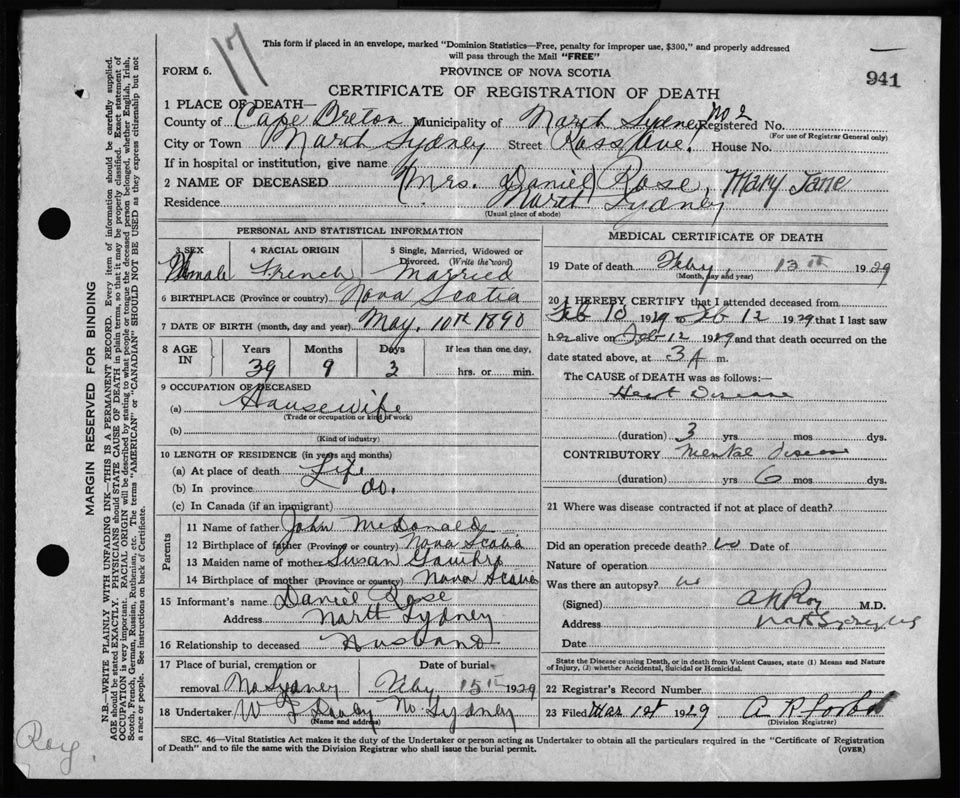 17
This form if placed in an envelope, marked "Dominion Statistics—Free, penalty for improper use, $300," and properly addressed
will pass through the Mail "FREE"
FORM 6.
PROVINCE OF NOVA SCOTIA
941
CERTIFICATE OF REGISTRATION OF DEATH
1 PLACE OF DEATH—
County of Cape Breton Municipality of North Sydney No 2 Registered No.
(For use of Registrar General only)
City or Town North Sydney Street Ross Ave. House No.
If in hospital or institution, give name
2 NAME OF DECEASED (Mrs. Daniel) Rose, Mary Jane
Residence North Sydney
(Usual place of abode)
PERSONAL AND STATISTICAL INFORMATION
3 SEX 4 RACIAL ORIGIN 5 Single, Married, Widowed or Divorced. (Write the word)
Female French Married
6 BIRTHPLACE (Province or country) Nova Scotia
7 DATE OF BIRTH (month, day and year) May, 10th 1890
8 AGE IN Years Months Days If less than one day,
39 9 3 hrs. or min.
9 OCCUPATION OF DECEASED
(a) Housewife
(Trade or occupation or kind of work)
(b)
(Kind of industry)
10 LENGTH OF RESIDENCE (in years and months)
(a) At place of death Life
(b) In province do.
(c) In Canada (if an immigrant)
Parents
11 Name of father John McDonald
12 Birthplace of father (Province or country) Nova Scotia
13 Maiden name of mother Susan
14 Birthplace of mother (Province or country) Nova Scotia
15 Informant's name Daniel Rose
Address North Sydney
16 Relationship to deceased Husband
17 Place of burial, cremation or Date of burial
removal No Sydney Feby 15th 1929
18 Undertaker W No. Sydney
(Name and address)
MEDICAL CERTIFICATE OF DEATH
19 Date of death Feby, 13th 1929
(Month, day and year)
20 I HEREBY CERTIFY that I attended deceased from
Feb 10 1929 to Feb 12 1929 that I last saw
her alive on Feb 12 1929 and that death occurred on the
date stated above, at 3 A m.
The CAUSE of DEATH was as follows:—
Heart Disease
(duration) 3 yrs mos dys.
CONTRIBUTORY Mental disease
(duration) yrs 6 mos dys.
21 Where was disease contracted if not at place of death?
Did an operation precede death? No Date of
Nature of operation
Was there an autopsy? No
(Signed) Roy M.D.
Address North Sydney NS
Date
State the Disease causing Death, or in death from Violent Causes, state (1) Means and Nature
of Injury, (2) whether Accidental, Suicidal or Homicidal.
22 Registrar's Record Number
23 Filed Mar 1st 1929 A R Forbes
(Division Registrar)
SEC. 46—Vital Statistics Act makes it the duty of the Undertaker or person acting as Undertaker to obtain all the particulars required in the "Certificate of Registration
of Death" and to file the same with the Division Registrar who shall issue the burial permit.
(OVER)
MARGIN RESERVED FOR BINDING
N.B.—WRITE PLAINLY WITH UNFADING INK—THIS IS A PERMANENT RECORD. Every item of information should be carefully supplied.
AGE should be stated EXACTLY. PHYSICIANS should STATE CAUSE OF DEATH in plain terms, so that it may be properly classified. Exact statement of
OCCUPATION is very important. RACIAL ORIGIN will be described by stating to what people or tongue the deceased person belonged, whether English, Irish,
Scotch, French, German, Russian, Ruthenian, etc. The terms "AMERICAN" or "CANADIAN" SHOULD NOT BE USED as they express citizenship but not
a race or people. See instructions on back of Certificate.
Roy